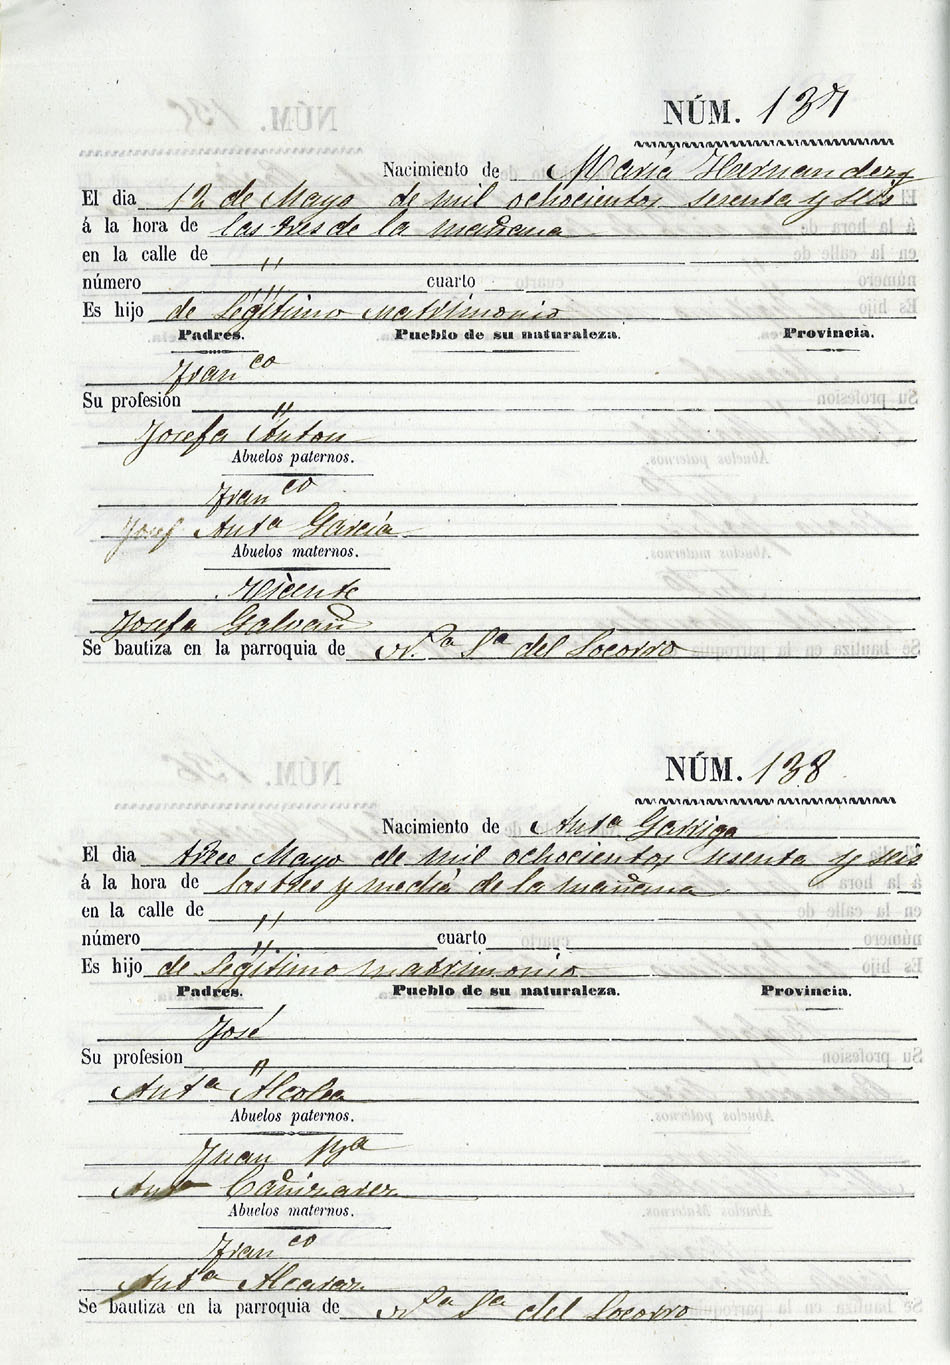 NÚM. 137
Nacimiento de María Hernandez
El dia 12 de Mayo de mil ochocientos sesenta y seis
á la hora de las tres de la mañana
en la calle de "
número " cuarto
Es hijo de legitimo matrimonio
Padres. Pueblo de su naturaleza. Provincia.
Franco
Su profesión "
Josefa Anton
Abuelos paternos.
Franco
Josef Anta García
Abuelos maternos.
Vicente
Josefa Galvañ
Se bautiza en la parroquia de N.a Sa del Socorro
NÚM. 138
Nacimiento de Anta Garriga
El dia trece Mayo de mil ochocientos sesenta y seis
á la hora de las tres y media de la mañana
en la calle de "
número " cuarto
Es hijo de legitimo matrimonio
Padres. Pueblo de su naturaleza. Provincia.
José
Su profesion "
Anta Alcolea
Abuelos paternos.
Juan Bta
Anta Cañizares
Abuelos maternos.
Franco
Anta Alcaraz
Se bautiza en la parroquia de N.a Sa del Socorro